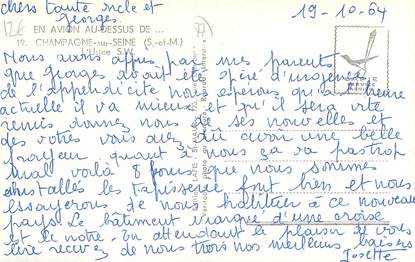 chers tante oncle et
georges. 19-10-64
EN AVION AU-DESSUS DE ...
12. CHAMPAGNE-sur-SEINE (S.-et-M.)
L'Usine S.W.
Nous avons appris par mes parents
que georges avait été opéré d'urgence
de l'appendicite nous espérons qu'à l'heure
actuelle il va mieux et qu'il sera vite
remis donnez nous de ses nouvelles et
des votres vous avez dû avoir une belle
frayeur quant à nous ça va pas trop
mal voilà 8 jours que nous sommes
installés les tapisseries font bien et nous
essayerons de nous habituer à ce nouveau
pays. Le bâtiment marqué d'une croise
est le notre. En attendant le plaisir de vous
lire recevez de nous trois nos meilleurs baisers
Josette